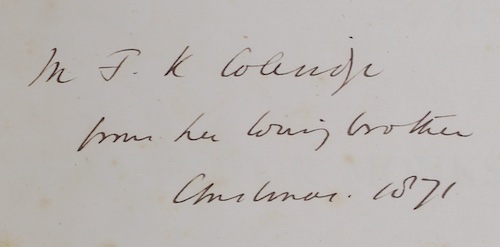 M F K Coleridge
from her loving brother
Christmas. 1871